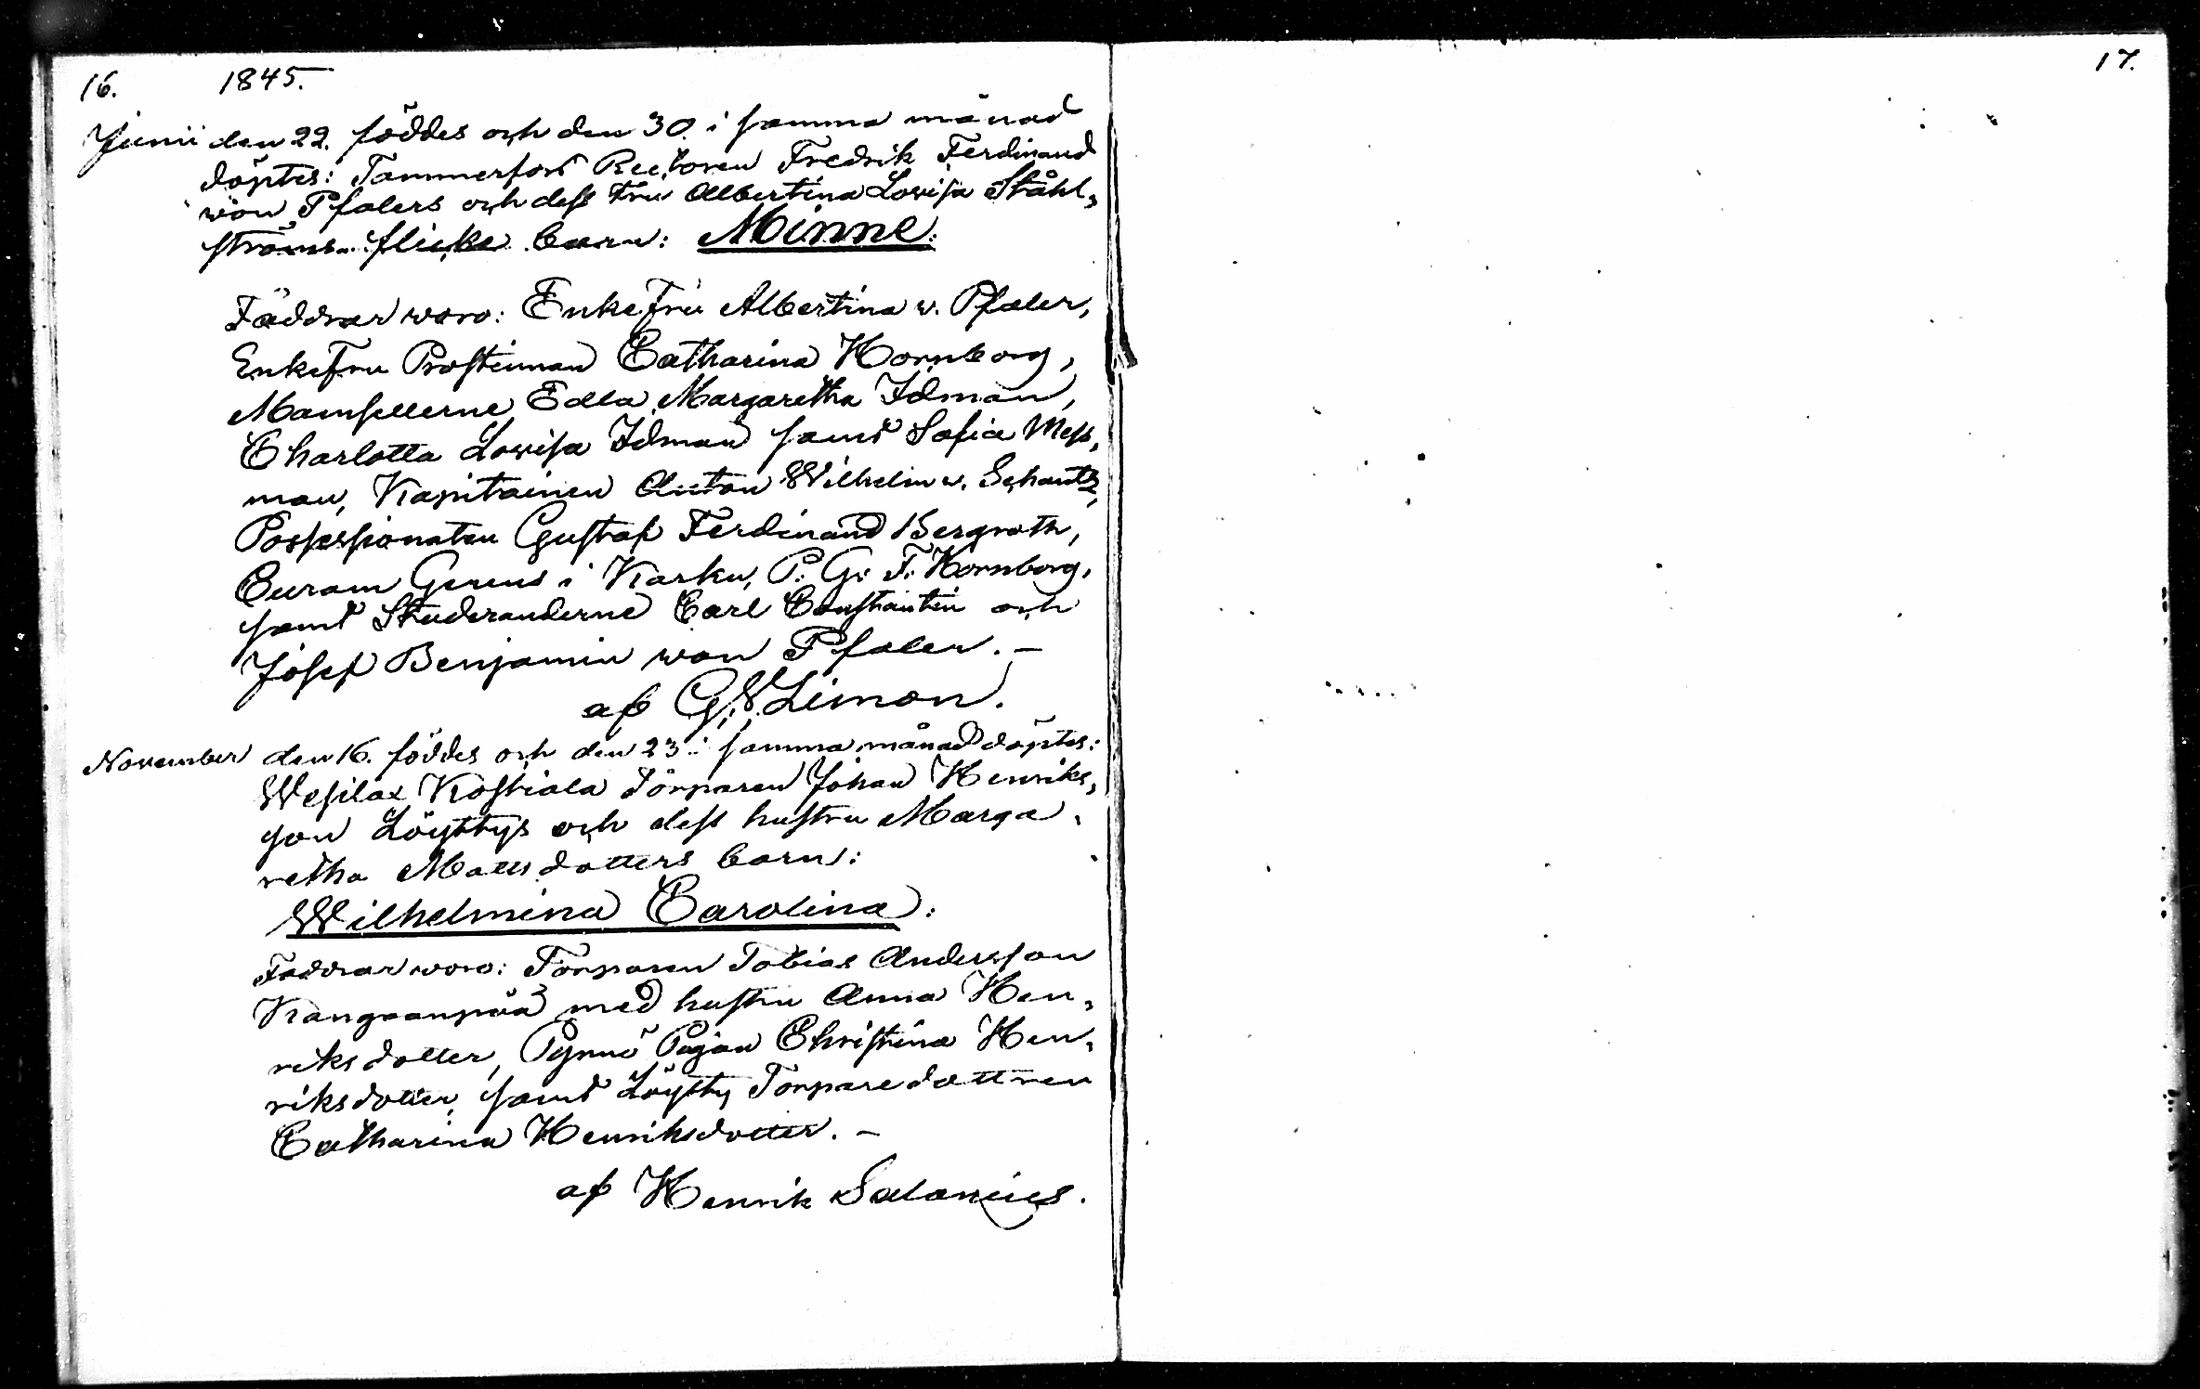 16. 1845.
Junii den 22. föddes och den 30. i samma månad
döptes: Tammerfors Rectoren Fredrik Ferdinand
von Pfalers och dess Fru Albertina Lovisa Ståhl-
ströms flicke barn: Minne.
Faddrar woro: Enkefru Albertina v. Pfaler,
EnkeFru Prostinnan Catharina Hornborg,
Mamsellerne Edla Margaretha Idman,
Charlotta Lovisa Idman samt Sofia Mess-
man, Kapitainen Anton Wilhelm v. Schantz,
Possessionaten Gustaf Ferdinand Bergroth,
Curam Gerens i Karku, P. G. F. Hornborg,
samt Studeranderne Carl Constantin och
Josef Benjamin von Pfaler. –
af G. Limon.
November den 16. föddes och den 23 i samma månad döptes:
Wesilax Kostiala Torparen Johan Henriks-
son Löyttys och dess hustru Marga-
retha Mattsdotters barn:
Wilhelmina Carolina:
Faddrar woro: Torparen Tobias Andersson
Kangaanpää med hustru Anna Hen-
riksdotter, Pajan Christina Hen-
riksdotter, samt Löytty Torparedottren
Catharina Henriksdotter. –
af Henrik Salonius.
17.